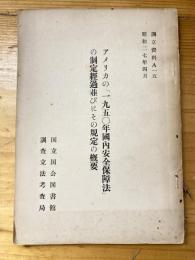 国立資料A一五
昭和二七年四月
アメリカの一九五〇年國内安全保障法
の制定経過並びにその規定の概要
国立国会図書館
調査立法考査局